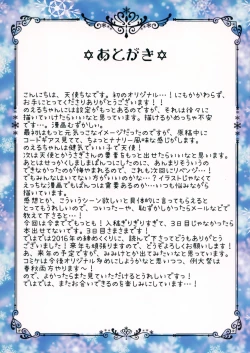 ✡あとがき✡
こんにちは、天使ちなです。初のオリジナル…！にもかかわらず、
お手にとってくださりありがとうございます！！
のえるちゃんには設定がもっとあるのですが、それは徐々に
描いていけたらいいなと思います。描けるかめっちゃ不安
です…。漫画むずかしい。
最初はもっと元気っこなイメージだったのですが、原稿中に
コードギアス見てて、ちょっとナナリー風味な感じがします。
のえるちゃんは健気でいい子で天使！
次は天使とかうさぎさんの要素をもっと出せたらいいなと思います。
あとはせっかくしましまぱんつにしたのに、あんまりそういうの
できなかったのが悔まれるので、これも次回にリベンジ…！
でもみんなはいてない方がいいのかな…？イラストじゃなくて
えっちな漫画でもぱんつは需要あるのか…いつも悩みながら
描いています。
感想とか、こういうシーン欲しいと具体的に言ってもらえると
とってもうれしいので、ついったーや、恥ずかしかったらメールなどで
教えて下さると…！
今回は今まででもっとも！入稿ぎりぎりすぎて、3日目じゃなかったら
本出せてないです。3日目さまさまです！
ではでは2016年の締めくくりに、読んで下さってどうもありがとう
ございました！来年も頑張りますので、どうぞよろしくお願いします！
あ、来年の予定ですが、みみけっとか出てみたいなと思っています。
コミケは今後オリジナル多めにしようかなと思っつつ、例大祭は
春秋両方やります〜！
ので、よかったらまた見ていただけるとうれしいです！
ではでは、またお会いできるのを楽しみにしています…！